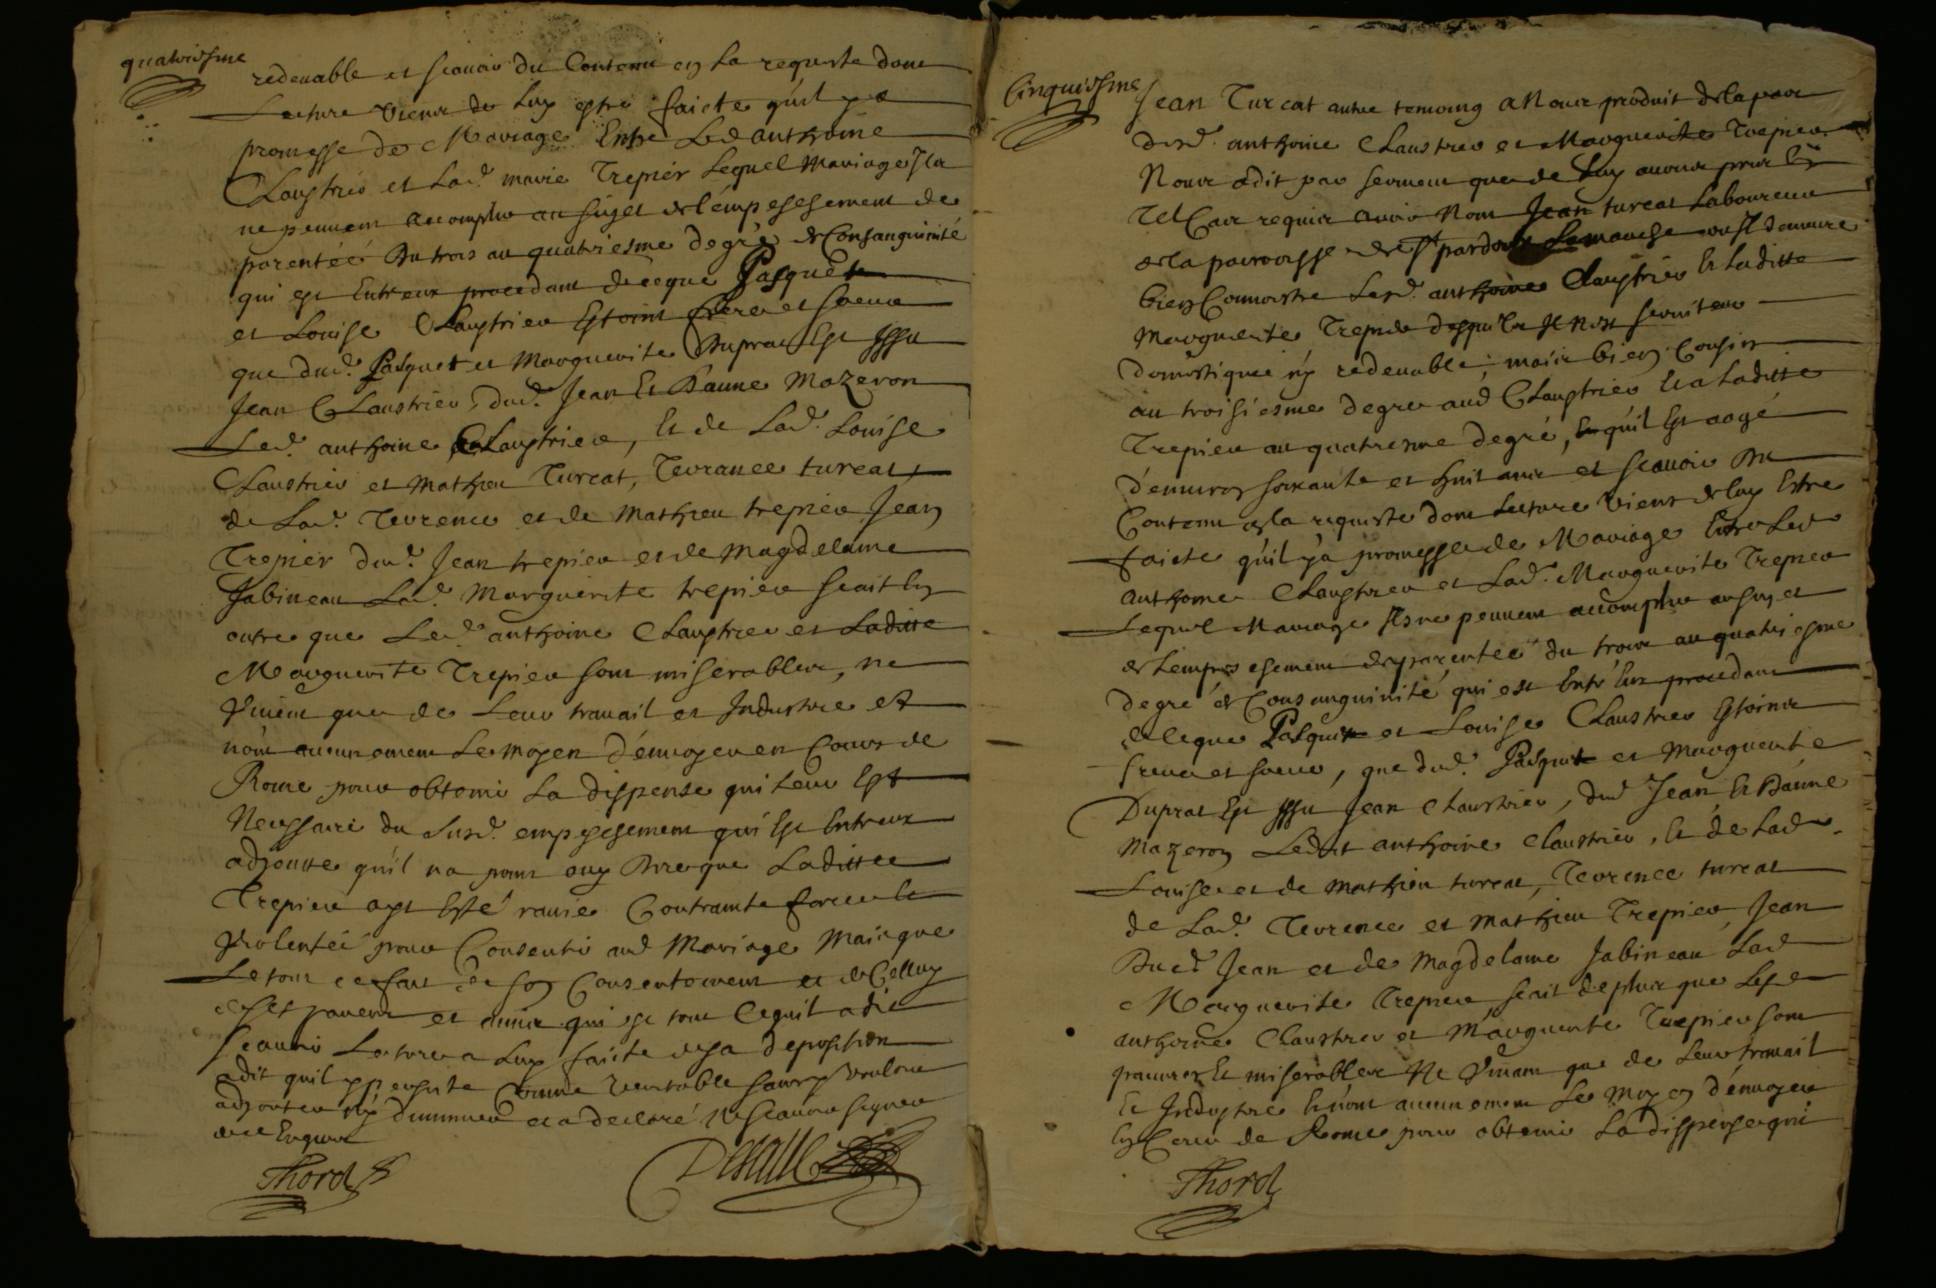 quatriesme
redevable et scavoir du Contenu en La requeste dont
Lecture vient de Luy estre faicte qu'il y a
promesse de Mariage Entre Led anthoine
Claustrier et Lad. marie Trepier Lequel Mariage Ils
ne peuvent accomplir au suget de l'empeschement de
parenteé Du trois au quatriesme degré de Consanguinité
qui est Entreux procedant de ce que Pasquet
et Louise Claustrier Estoint frere et soeur
que dud. Pasquet et Marguerite Duprat Est Issu
Jean Claustrier, dud. Jean Et Danne Mazeron
Led. anthoine Claustrier, Et de Lad. Louise
Claustrier et Mathieu Turcat, Terrance turcat
de Lad. Terrence et de Mathieu trepier Jean
Trepier dud. Jean trepier et de Magdelaine
Jabineau Lad. Marguerite trepier scait En
outre que Led. anthoine Claustrier et Laditte
Marguerite Trepier sont miserables, ne
Vivent que de Leur travail et Industrie et
n'ont aucunement Le moyen d'envoyer en Cour de
Rome pour obtenir La dispense qui Leur Est
Necessaire du susd. empeschement qui Est Entreux
adjoutte qu'il na point ouy Dire que Laditte
Trepier ayt Esté ravie Contrainte forcée et
Violentée pour Consentir aud Mariage Mais que
Le tout ce fait de son Consentement et de Celluy
de ses parents et amis qui est tout Ce quil a dit
scavoir Lecture a Luy faicte de sa deposition
a dit quil y persiste Comme veritable sans y vouloir
adjouter ny diminuer et a declaré Ne scavoir signer
de ce Enquis
Thord
Cinquiesme
Jean Turcat autre temoing a Nous produit de la part
desd. anthoine Claustrier et Marguerite Trepier
Nous a dit par serment que de Luy avons pris En
Tel Cas requis avoir Nom Jean turcat Laboureur
de la parroisse de St pardoux Lamarche ou Il demeure
bien Connoistre Lesd. anthoine Claustrier Et Laditte
Marguerite Trepier desquels Il N'est serviteur
domestique ny redevable, mais bien Cousin
au troisiesme degre aud Claustrier Et a Laditte
Trepier au quatriesme degré, Et qu'il Est aagé
d'environ soixante et huit ans et scavoir Du
Contenu de la requeste dont Lecture Vient de Luy Estre
faicte qu'il y a promesse de Mariage Entre Led
anthoine Claustrier et Lad. Marguerite Trepier
Lequel Mariage Ils ne peuvent accomplir au suget
de L'empeschement de parenteé du trois au quatriesme
degré de Consanguinité qui est Entr'Eux procedant
de ce que Pasquet et Louise Claustrier Estoint
frere et soeur, que dud. Pasquet et Marguerite
Duprat Est Issu Jean Claustrier, dud Jean Et Danne
Mazeron Ledit anthoine Claustrier, Et de Lad.
Louise et de Mathieu turcat, Terrence turcat
de Lad. Terrence et Mathieu Trepier Jean
Dud. Jean et de Magdelaine Jabineau Lad
Marguerite Trepier scait de plus que Lesd
anthoine Claustrier et Marguerite Trepier sont
pauvres Et miserables Ne Vivant que de Leur travail
Et Industrie Et n'ont aucunement Le Moyen d'envoyer
En Cour de Rome pour obtenir La dispense qui
Thord